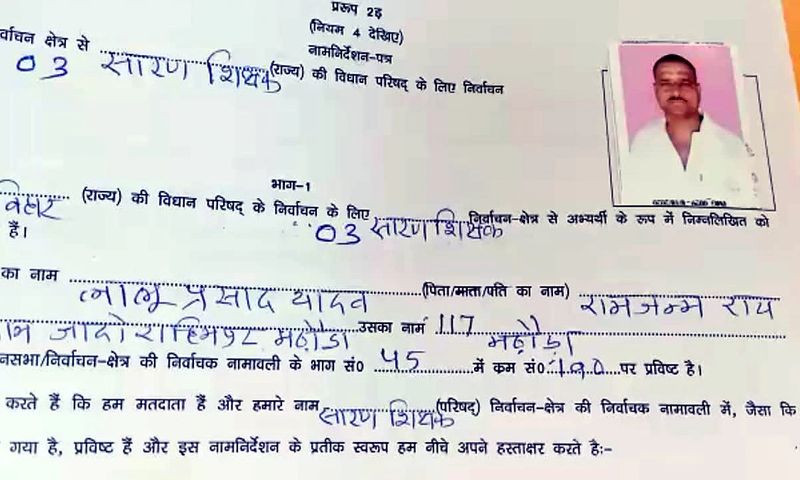 प्ररूप 2ड़
(नियम 4 देखिए)
नामनिर्देशन-पत्र
र्वाचन क्षेत्र से 03 सारण शिक्षक (राज्य) की विधान परिषद् के लिए निर्वाचन
भाग-1
बिहार (राज्य) की विधान परिषद् के निर्वाचन के लिए 03 सारण शिक्षक निर्वाचन-क्षेत्र से अभ्यर्थी के रूप में निम्नलिखित को
हैं।
का नाम लालू प्रसाद यादव (पिता/माता/पति का नाम) रामजन्म राय
जादो राहिमपुर मढ़ौड़ा उसका नाम 117 मढ़ौड़ा
नसभा/निर्वाचन-क्षेत्र की निर्वाचक नामावली के भाग सं० 45 में कम सं० 190 पर प्रविष्ट है।
करते हैं कि हम मतदाता हैं और हमारे नाम सारण शिक्षक (परिषद्) निर्वाचन-क्षेत्र की निर्वाचक नामावली में, जैसा कि
गया है, प्रविष्ट हैं और इस नामनिर्देशन के प्रतीक स्वरूप हम नीचे अपने हस्ताक्षर करते है:-